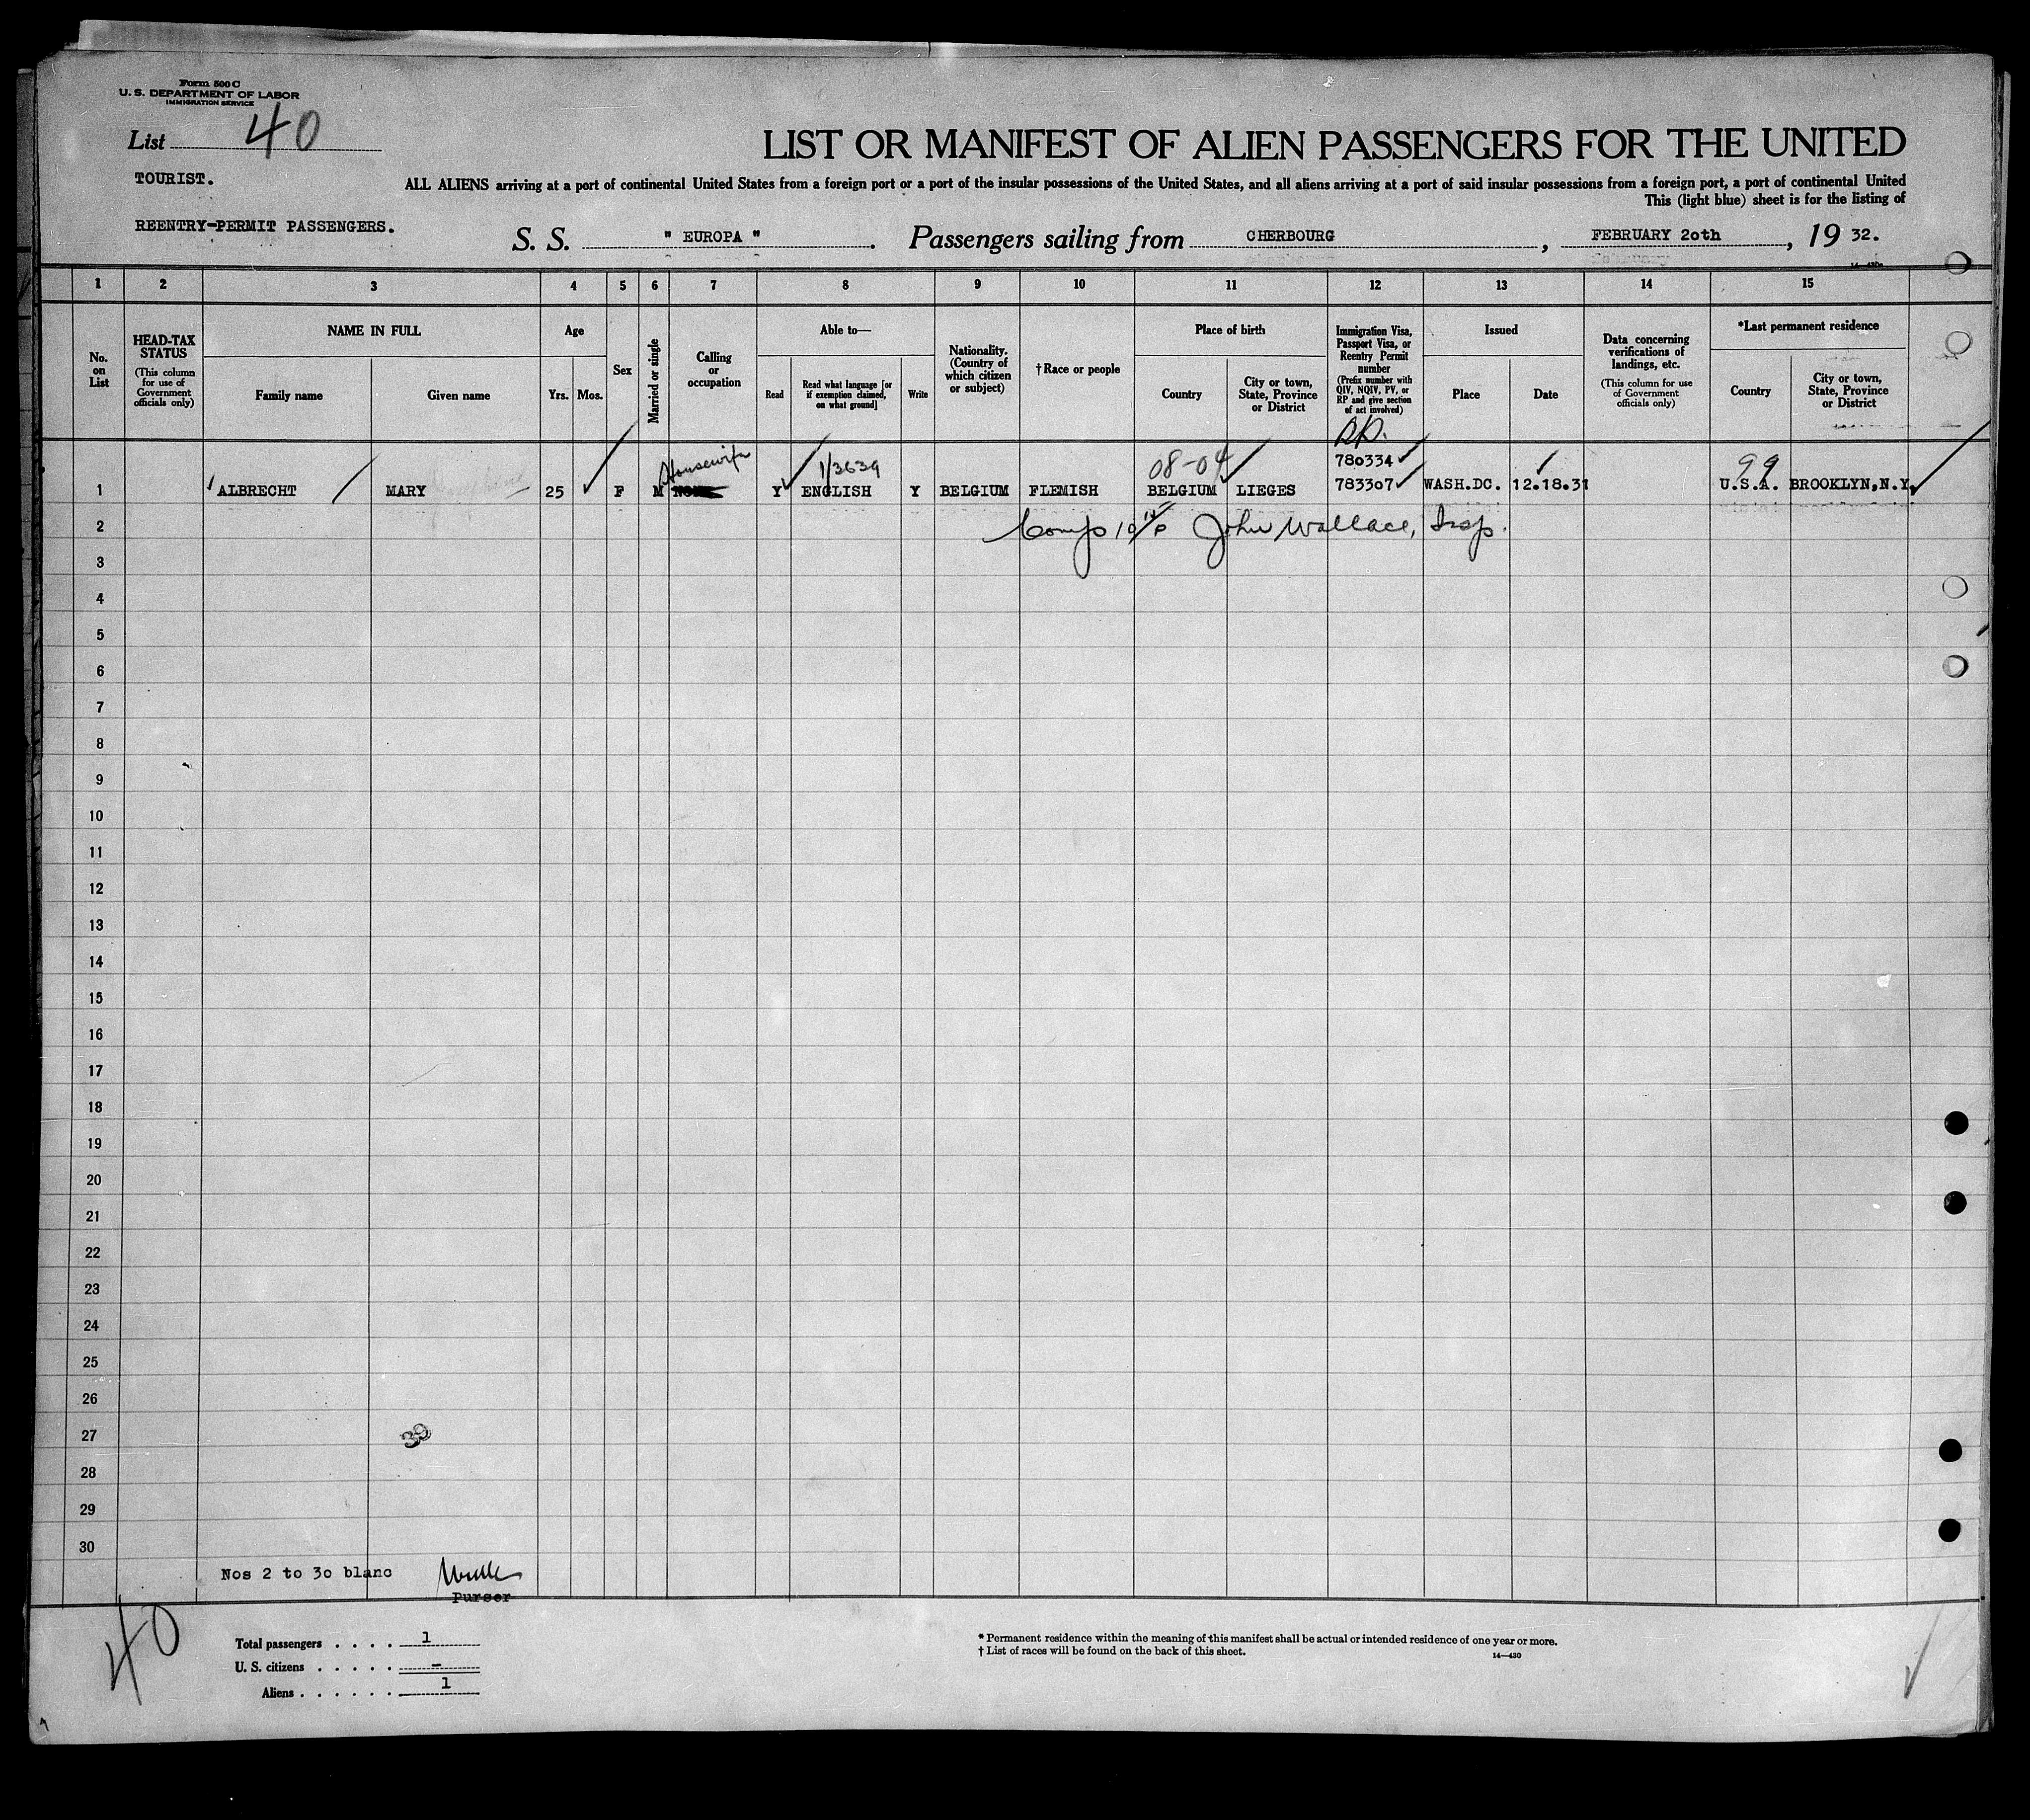 Form 500 C
U. S. DEPARTMENT OF LABOR
IMMIGRATION SERVICE
List 40
LIST OR MANIFEST OF ALIEN PASSENGERS FOR THE UNITED
TOURIST.
ALL ALIENS arriving at a port of continental United States from a foreign port or a port of the insular possessions of the United States, and all aliens arriving at a port of said insular possessions from a foreign port, a port of continental United
This (light blue) sheet is for the listing of
REENTRY-PERMIT PASSENGERS.
S. S. " EUROPA ". Passengers sailing from CHERBOURG, FEBRUARY 2oth, 19 32.
14—430a
1 2 3 4 5 6 7 8 9 10 11 12 13 14 15
No. on List
HEAD-TAX STATUS (This column for use of Government officials only)
NAME IN FULL
Family name Given name
Age
Yrs. Mos.
Sex
Married or single
Calling or occupation
Able to—
Read Read what language [or if exemption claimed, on what ground] Write
Nationality. (Country of which citizen or subject)
†Race or people
Place of birth
Country City or town, State, Province or District
Immigration Visa, Passport Visa, or Reentry Permit number (Prefix number with QIV, NQIV, PV, or RP and give section of act involved)
Issued
Place Date
Data concerning verifications of landings, etc. (This column for use of Government officials only)
*Last permanent residence
Country City or town, State, Province or District
Housewife 1/3639 08-04 780334 99
1 ALBRECHT MARY 25 F M Y ENGLISH Y BELGIUM FLEMISH BELGIUM LIEGES 783307 WASH.DC. 12.18.31 U.S.A. BROOKLYN,N.Y.
2 John Wallace, Insp.
3
4
5
6
7
8
9
10
11
12
13
14
15
16
17
18
19
20
21
22
23
24
25
26
27
28
29
30
Nos 2 to 3o blanc
Purser
40
Total passengers . . . . 1
U. S. citizens . . . . . -
Aliens . . . . . . 1
* Permanent residence within the meaning of this manifest shall be actual or intended residence of one year or more.
† List of races will be found on the back of this sheet.
14—430